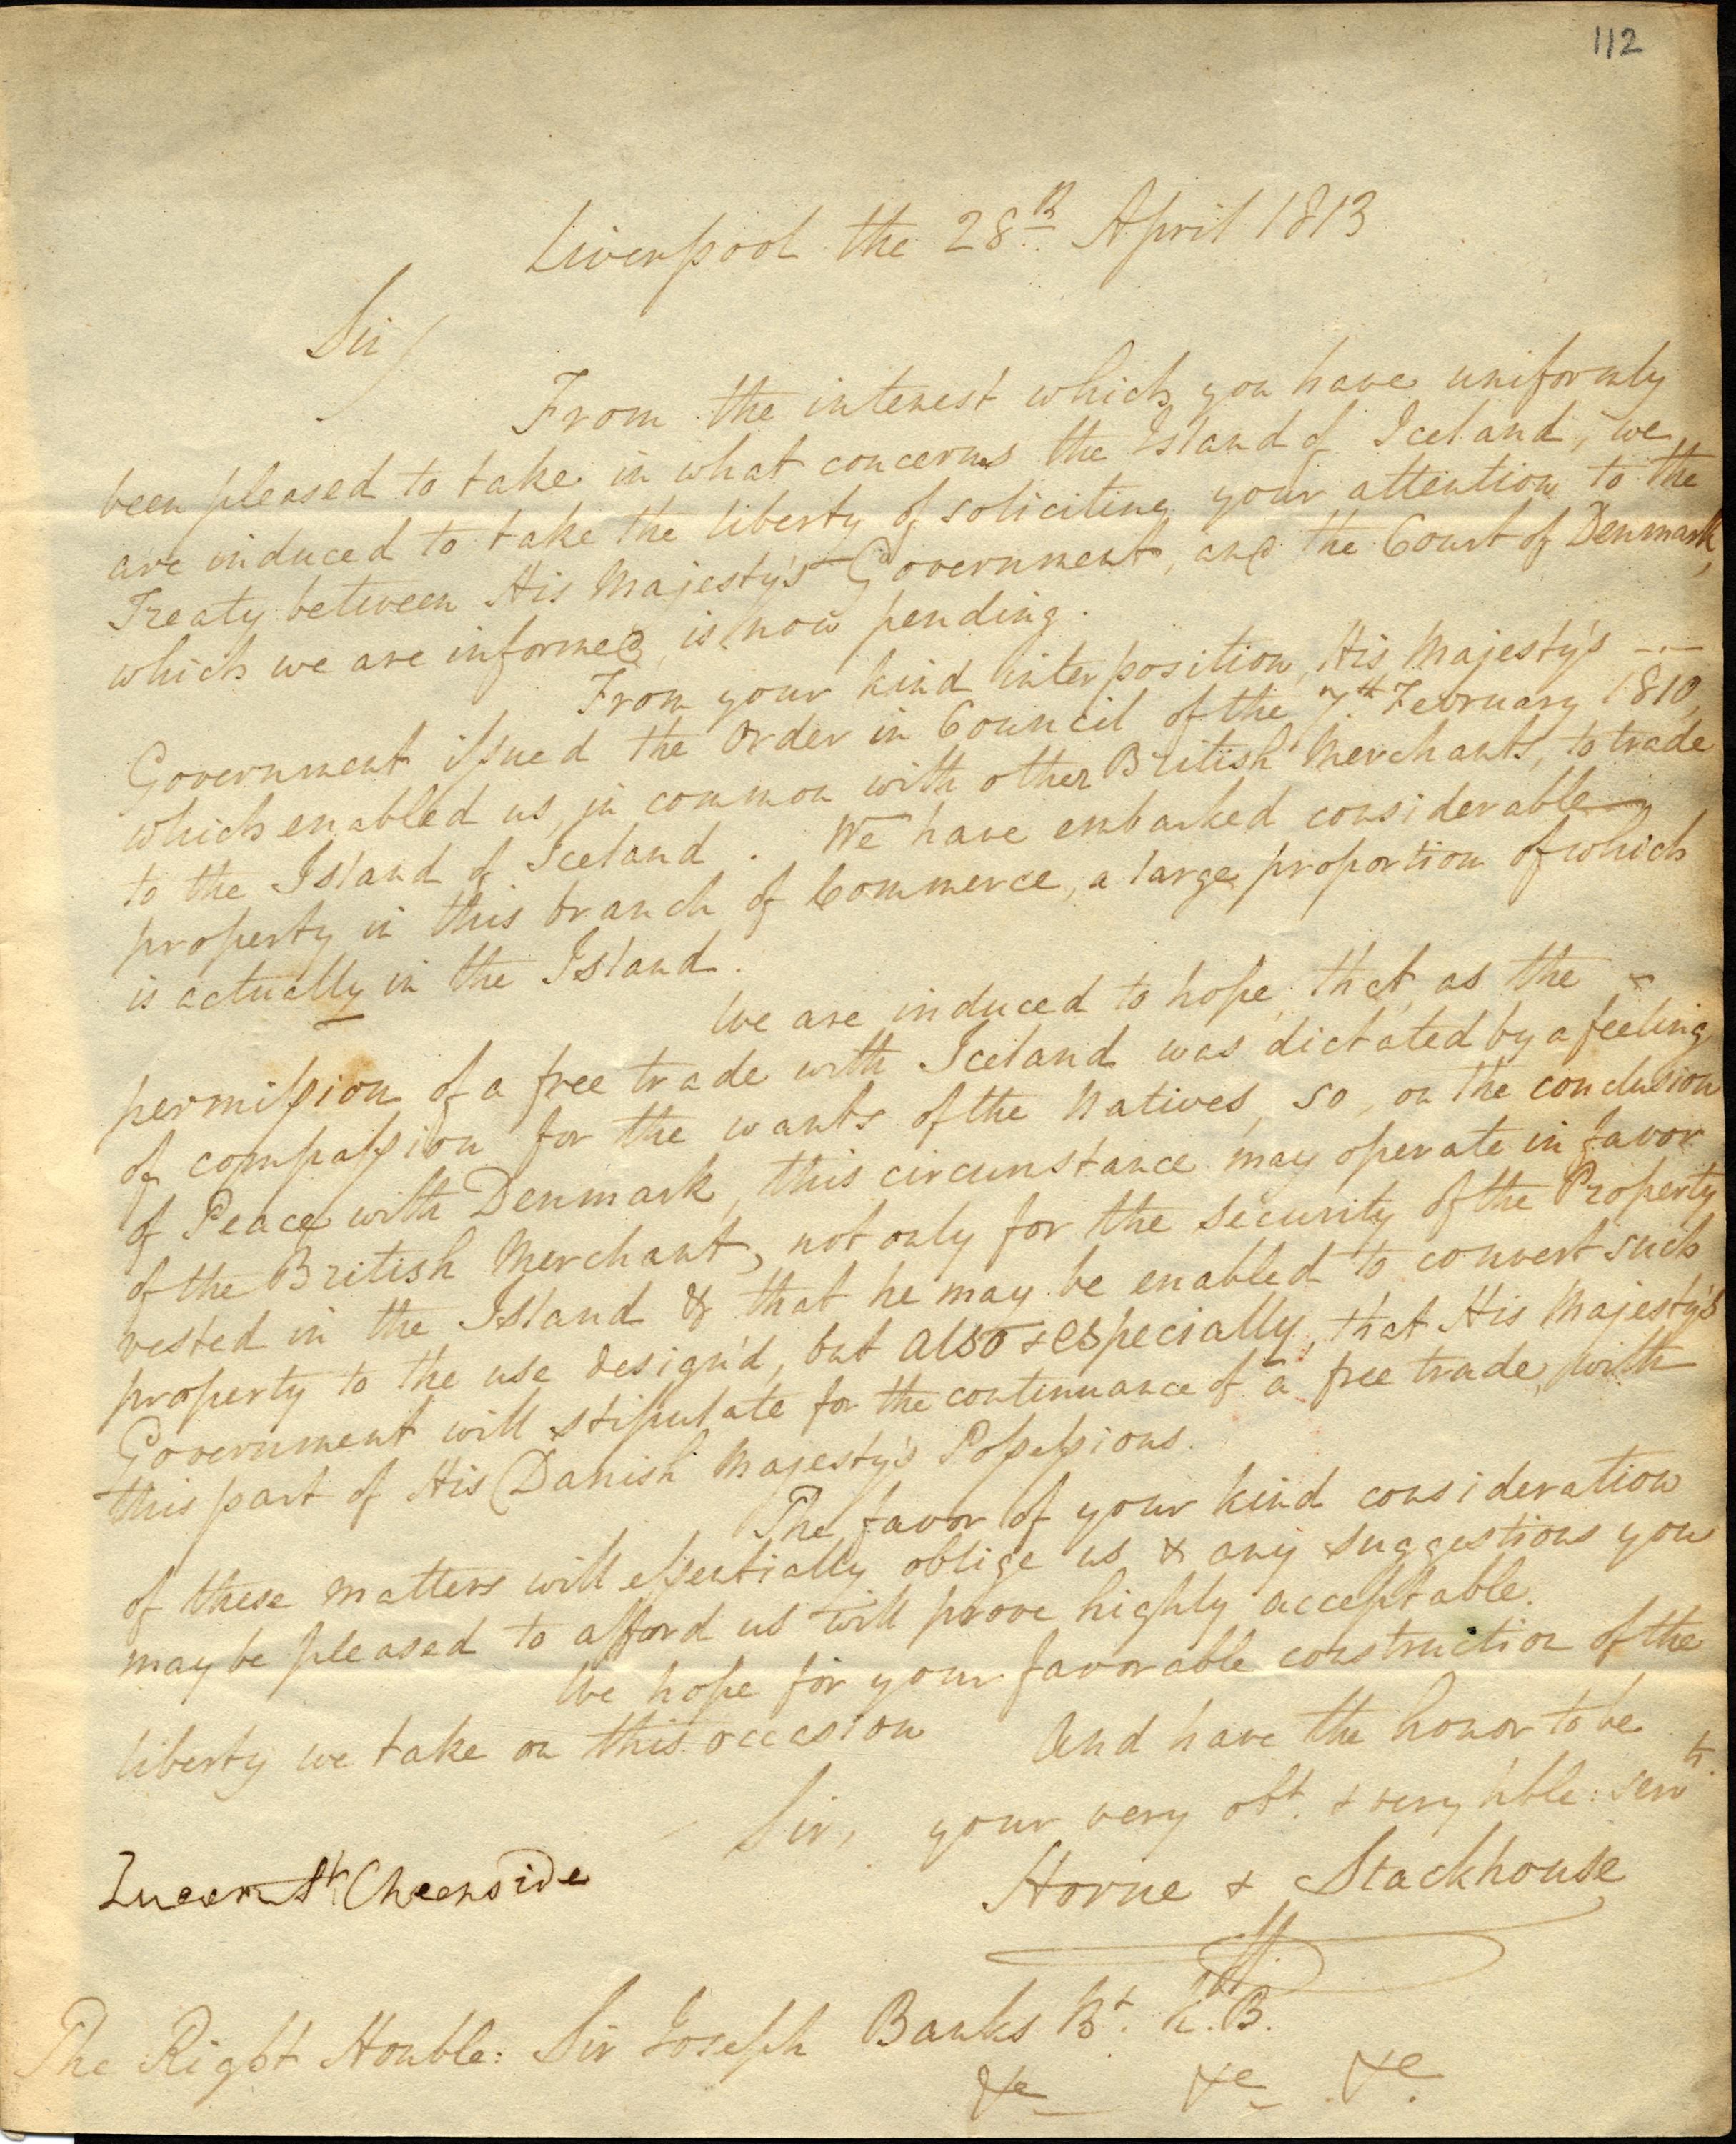 112
Liverpool the 28th April 1813
Sir/
From the interest which you have uniformly
been pleased to take in what concerns the Island of Iceland, we
are induced to take the liberty of soliciting your attention to the
Treaty between His Majesty's Government, and the Court of Denmark,
which we are informed is now pending.
From your kind interposition, His Majesty's
Government issued the Order in Council of the 7th February 1810,
which enabled us, in common with other British Merchants, to trade
to the Island of Iceland. We have embarked considerable
property in this branch of Commerce, a large proportion of which
is actually in the Island.
We are induced to hope, that, as the
permission of a free trade with Iceland was dictated by a feeling
of compassion for the wants of the Natives, so, on the conclusion
of Peace with Denmark, this circumstance may operate in favor
of the British Merchant, not only for the security of the Property
vested in the Island & that he may be enabled to convert such
property to the use design'd, but also & especially, that His Majesty's
Government will stipulate for the continuance of a free trade, with
this part of His Danish Majesty's Possessions.
The favor of your kind consideration
of these matters will essentially oblige us & any suggestions you
may be pleased to afford us will prove highly acceptable.
We hope for your favorable construction of the
liberty we take on this occasion
And have the honor to be
Sir, your very obt. & very hble: servts.
Horne & Stackhouse
The Right Honble: Sir Joseph Banks Bt. K.B.
&c &c &c.